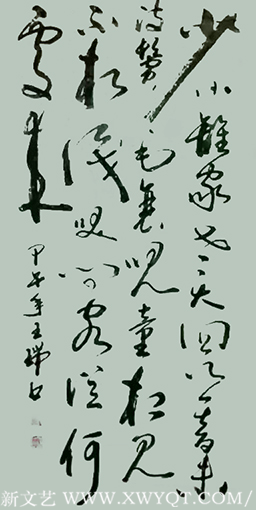 少小離家老大回乡音未
改鬓毛衰児童相见
不相識笑问客從何
處来
甲午年王瑞
新文艺/WWW.XWYQT.COM/